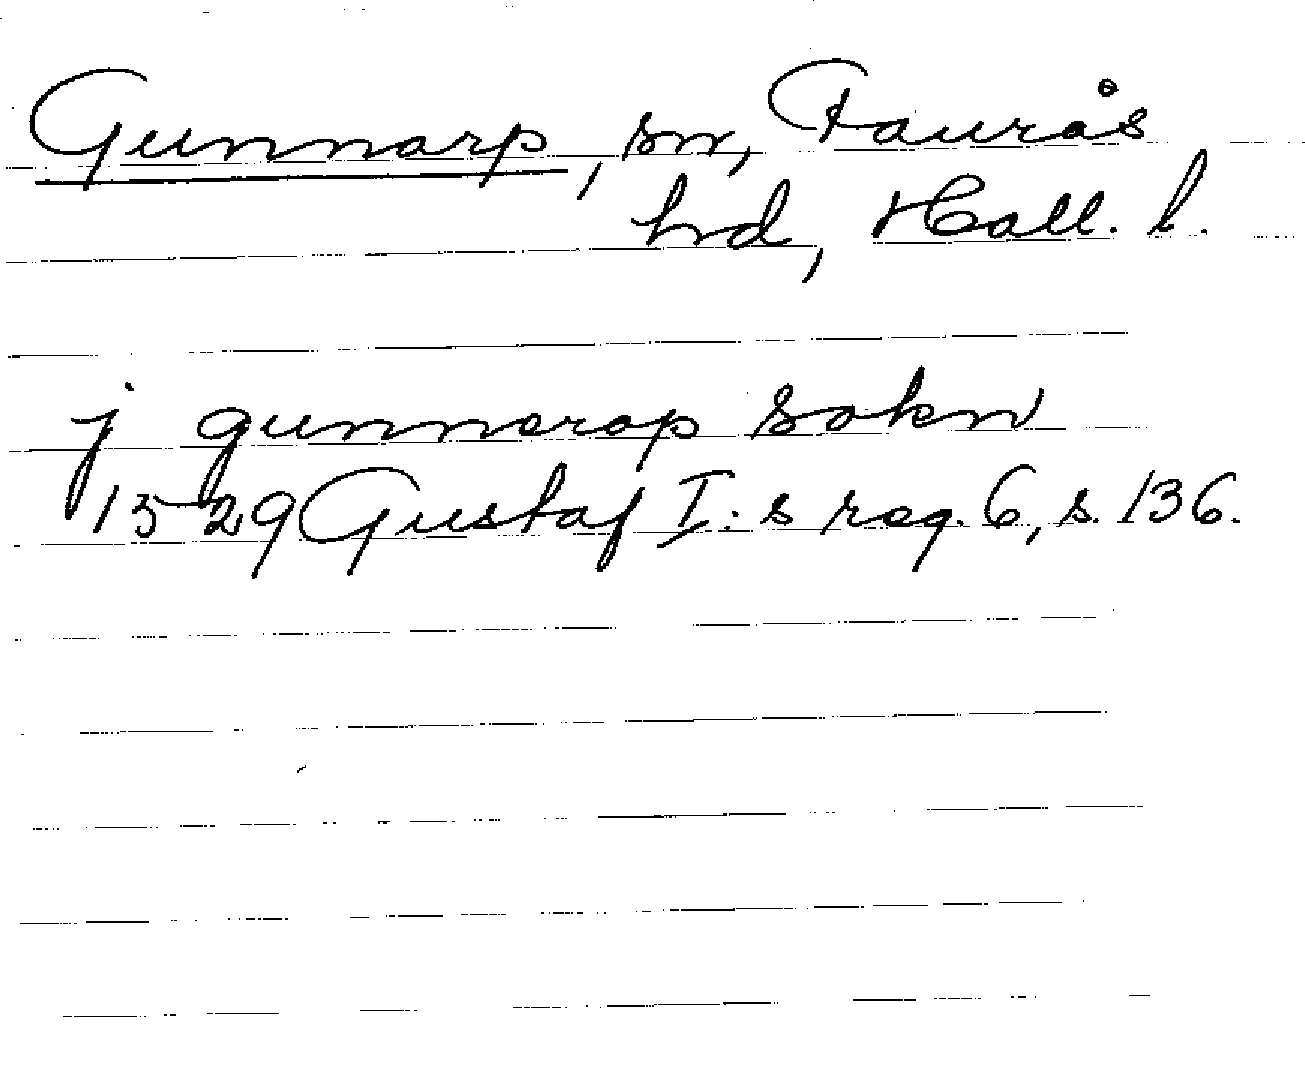 Gunnarp, sn, Faurås
hd, Hall. l.
j gunnerop sokn
1529 Gustaf I:s reg. 6, s. 136.